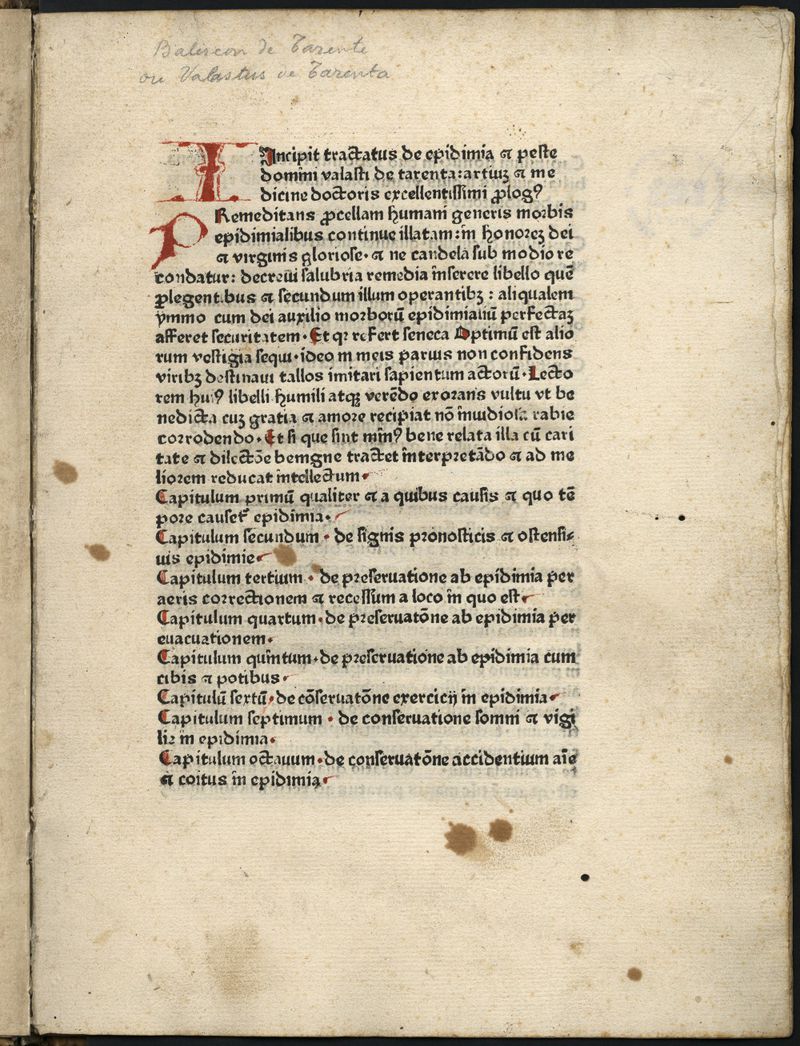 Balescon de Tarente
ou Valastus de Tarenta
Incipit tractatus de epidimia ⁊ peste
domini valasti de tarenta: artiuꝫ ⁊ me
dicine doctoris excellentissimi ꝓlogꝰ
PRemeditans ꝓcellam humani generis morbis
epidimialibus continue illatam: in honoreꝫ dei
⁊ virginis gloriose· ⁊ ne candela sub modio re
condatur: decreui salubria remedia inserere libello quē
ꝓlegentibus ⁊ secundum illum operantibꝫ : aliqualem
ymmo cum dei auxilio morborū epidimialiū perfectaꝫ
afferet securitatem· Et qꝛ refert seneca Optimū est alio
rum vestigia sequi· ideo in meis paruis non confidens
viribꝫ destinaui tallos imitari sapientum actorū· Lecto
rem huiꝰ libelli humili atqꝫ verēdo exorans vultu vt be
nedicta cuꝫ gratia ⁊ amore recipiat nō inuidiosa rabie
corrodendo· Et si que sint minꝰ bene relata illa cū cari
tate ⁊ dilectōe benigne tractet interpretādo ⁊ ad me
liorem reducat intellectum·
Capitulum primū qualiter ⁊ a quibus causis ⁊ quo tē
pore causet᷑ epidimia·
Capitulum secundum · de signis pronosticis ⁊ ostensi⸗
uis epidimie
Capitulum tertium · de preseruatione ab epidimia per
aeris correctionem ⁊ recessum a loco in quo est
Capitulum quartum· de preseruatōne ab epidimia per
euacuationem·
Capitulum quintum· de preseruatione ab epidimia cum
cibis ⁊ potibus
Capitulū sextū· de cōseruatōne exercicij in epidimia
Capitulum septimum · de conseruatione somni ⁊ vigi
lie in epidimia·
Capitulum octauum· de conseruatōne accidentium aīe
⁊ coitus in epidimia